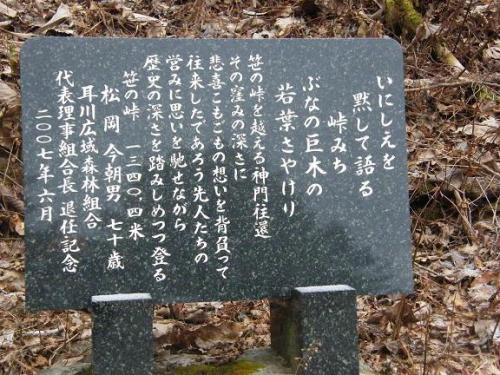 いにしえを
黙して語る
峠みち
ぶなの巨木の
若葉さやけり
笹の峠を越える神門往還
その窪みの深さに
悲喜こもごもの想いを背負って
往来したであろう先人たちの
営みに思いを馳せながら
歴史の深さを踏みしめつつ登る
笹の峠 一三四〇.四米
松岡今朝男 七十歳
耳川広域森林組合
代表理事組合長退任記念
二〇〇七年六月